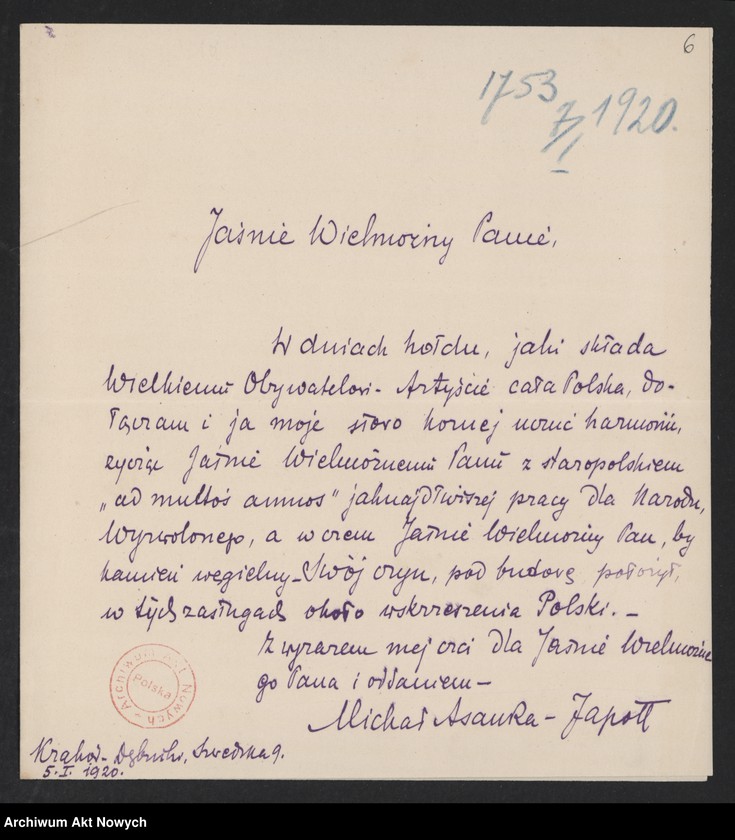 6
1753
7/I 1920.
Jaśnie Wielmożny Panie,
W dniach hołdu, jaki składa
Wielkiemu Obywatelowi - Artyście cała Polska, do-
łączam i ja moje słowo kornej uczuć harmonii,
życząc Jaśnie Wielmożnemu Panu z staropolskiem
„ad multos annos" jaknajdłuższej pracy dla Narodu,
Wyzwolonego, a w czem Jaśnie Wielmożny Pan, by
kamień węgielny - Swój czyn, pod budowę położył,
w tych zasługach około wskrzeszenia Polski. -
Z wyrazem mej czci dla Jaśnie Wielmożne
go Pana i oddaniem -
Michał Asanka - Japołł
Kraków - Dębniki, Szwedzka 9.
5. I. 1920.
Archiwum Akt Nowych
Polska
Archiwum Akt Nowych